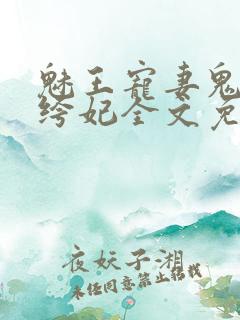 魅王寵妻鬼
绔妃全文免
夜妖子湘
未经同意禁止转载